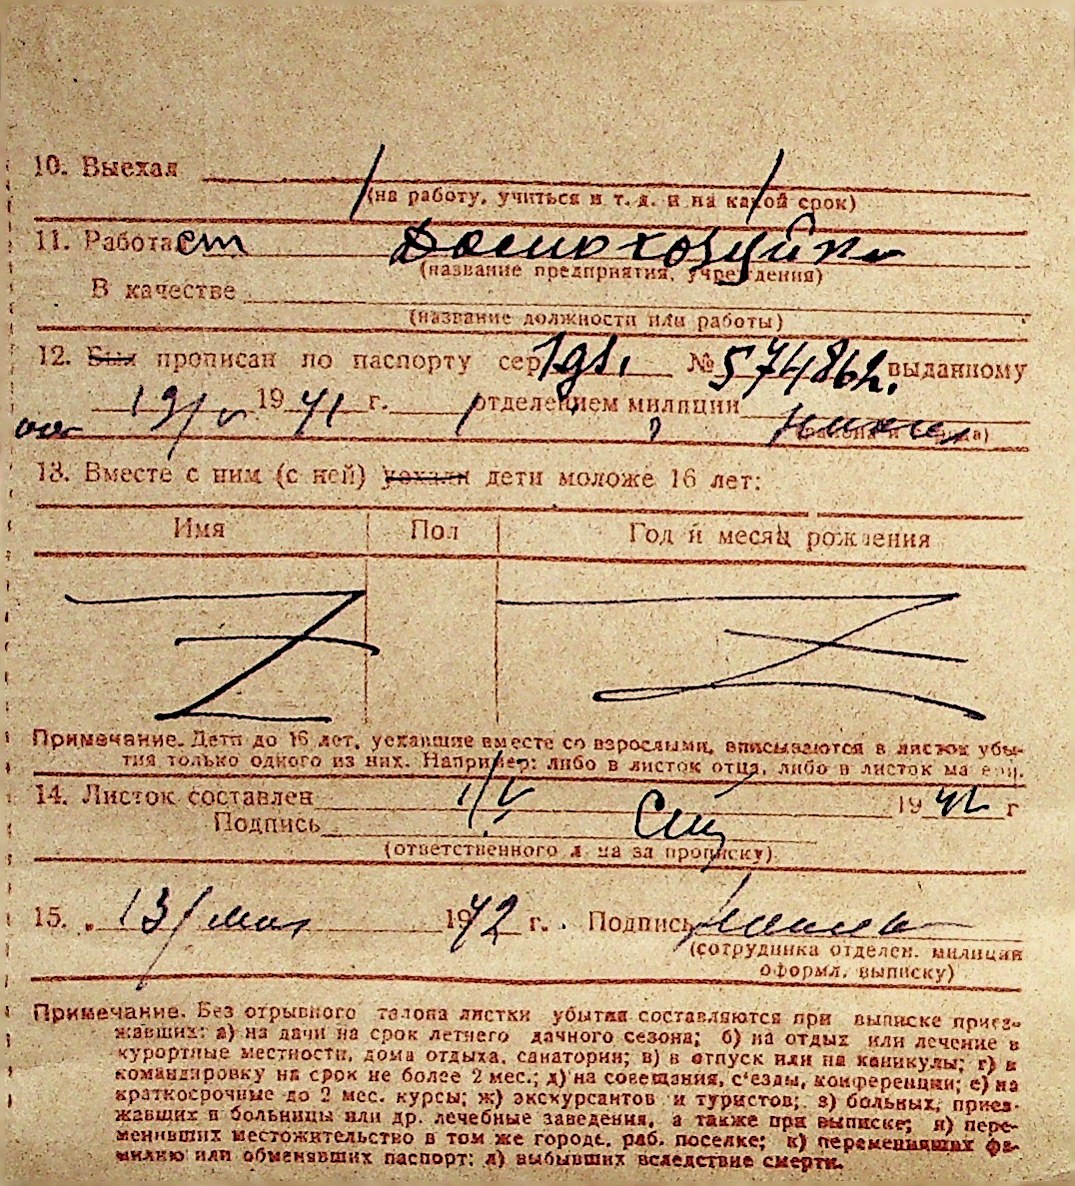 10. Выехал
(на работу, учиться и т. д. и на какой срок)
11. Работает Домохозяйка
(название предприятия, учреждения)
В качестве
(название должности или работы)
12. Был прописан по паспорту сер № 574862 выданному
13/V 1941 г. отделением милиции
13. Вместе с ним (с ней) уехали дети моложе 16 лет:
Имя Пол Год и месяц рождения
Примечание. Дети до 16 лет, уехавшие вместе со взрослыми, вписываются в листок убы-
тия только одного из них. Например: либо в листок отца, либо в листок матери.
14. Листок составлен 1/V 1942 г
Подпись
(ответственного лица за прописку)
15. „ 13/мая 1942 г. Подпись
(сотрудника отделен. милиции
оформл. выписку)
Примечание. Без отрывного талона листки убытия составляются при выписке приез-
жавших: а) на дачи на срок летнего дачного сезона; б) на отдых или лечение в
курортные местности, дома отдыха, санатории; в) в отпуск или на каникулы; г) в
командировку на срок не более 2 мес.; д) на совещания, с'езды, конференции; е) на
краткосрочные до 2 мес. курсы; ж) экскурсантов и туристов; з) больных, приез-
жавших в больницы или др. лечебные заведения, а также при выписке; и) пере-
менивших местожительство в том же городе, раб. поселке; к) переменивших фа-
милию или обменявших паспорт; л) выбывших вследствие смерти.